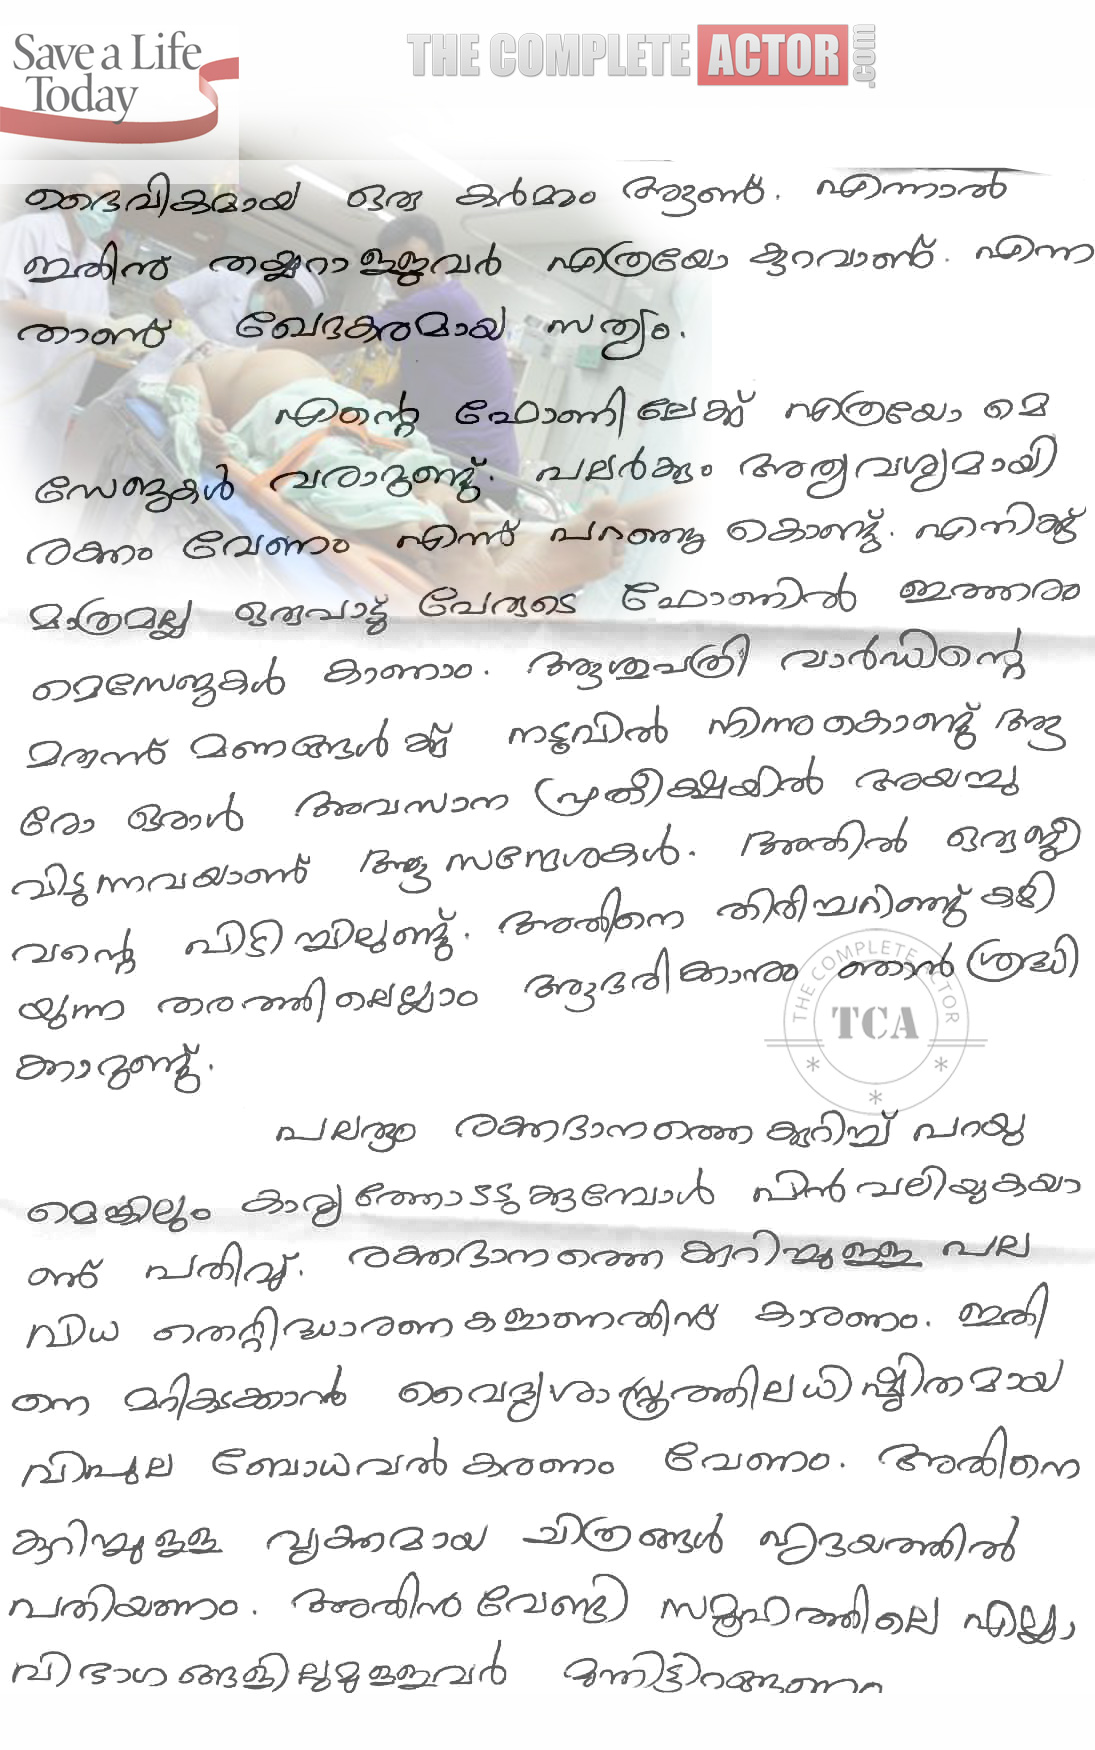 Save a Life
Today
THE COMPLETE ACTOR.com
ദൈവികമായ ഒരു കർമ്മം ആണ്. എന്നാൽ
ഇതിന് തയ്യാറാള്ളവർ എത്രയോ കുറവാണ്. എന്ന
താണ് ഖേദകരമായ സത്യം.
എന്റെ ഫോണിലേക്ക് എത്രയോ മെ
സേജുകൾ വരാറുണ്ട്. പലർക്കും അത്യവശ്യമായി
രക്തം വേണം എന്ന് പറഞ്ഞു കൊണ്ട്. എനിക്ക്
മാത്രമല്ല ഒരുപാട്ട് പേരുടെ ഫോണിൽ ഇത്തരം
മെസേജുകൾ കാണാം. ആശുപത്രി വാർഡിന്റെ
മരുന്ന് മണങ്ങൾക്ക് നടുവിൽ നിന്നുകൊണ്ട് ആ
രോ ഒരാൾ അവസാന പ്രതീക്ഷയിൽ അയച്ചു
വിടുന്നവയാണ് ആ സന്ദേശകൾ. അതിൽ ഒരുജീ
വന്റെ പിടിച്ചിലുണ്ട്. അതിനെ തിരിച്ചറിഞ്ഞ് കഴി
യുന്ന തരത്തിലെല്ലാം ആദരിക്കാനും ഞാൻ ശ്രദ്ധി
ക്കാറുണ്ട്.
THE COMPLETE ACTOR
TCA
പലരും രക്തദാനത്തെ കുറിച്ച് പറയു
മെങ്കിലും കാര്യത്തോടടുക്കുമ്പോൾ പിൻവലിയുകയാ
ണ് പതിവ്. രക്തദാനത്തെ കുറിച്ചുള്ള പല
വിധ തെറ്റിദ്ധാരണകളാണതിന് കാരണം. ഇതി
നെ മറികടക്കാൻ വൈദ്യശാസ്ത്രത്തിലധിഷ്ഠിതമായ
വിപുല ബോധവൽകരണം വേണം. അതിനെ
കുറിച്ചുള്ള വ്യക്തമായ ചിത്രങ്ങൾ ഹൃദയത്തിൽ
പതിയണം. അതിൻ വേണ്ടി സമൂഹത്തിലെ എല്ലാ
വിഭാഗങ്ങളിലുമുള്ളവർ മുന്നിട്ടിറങ്ങണം